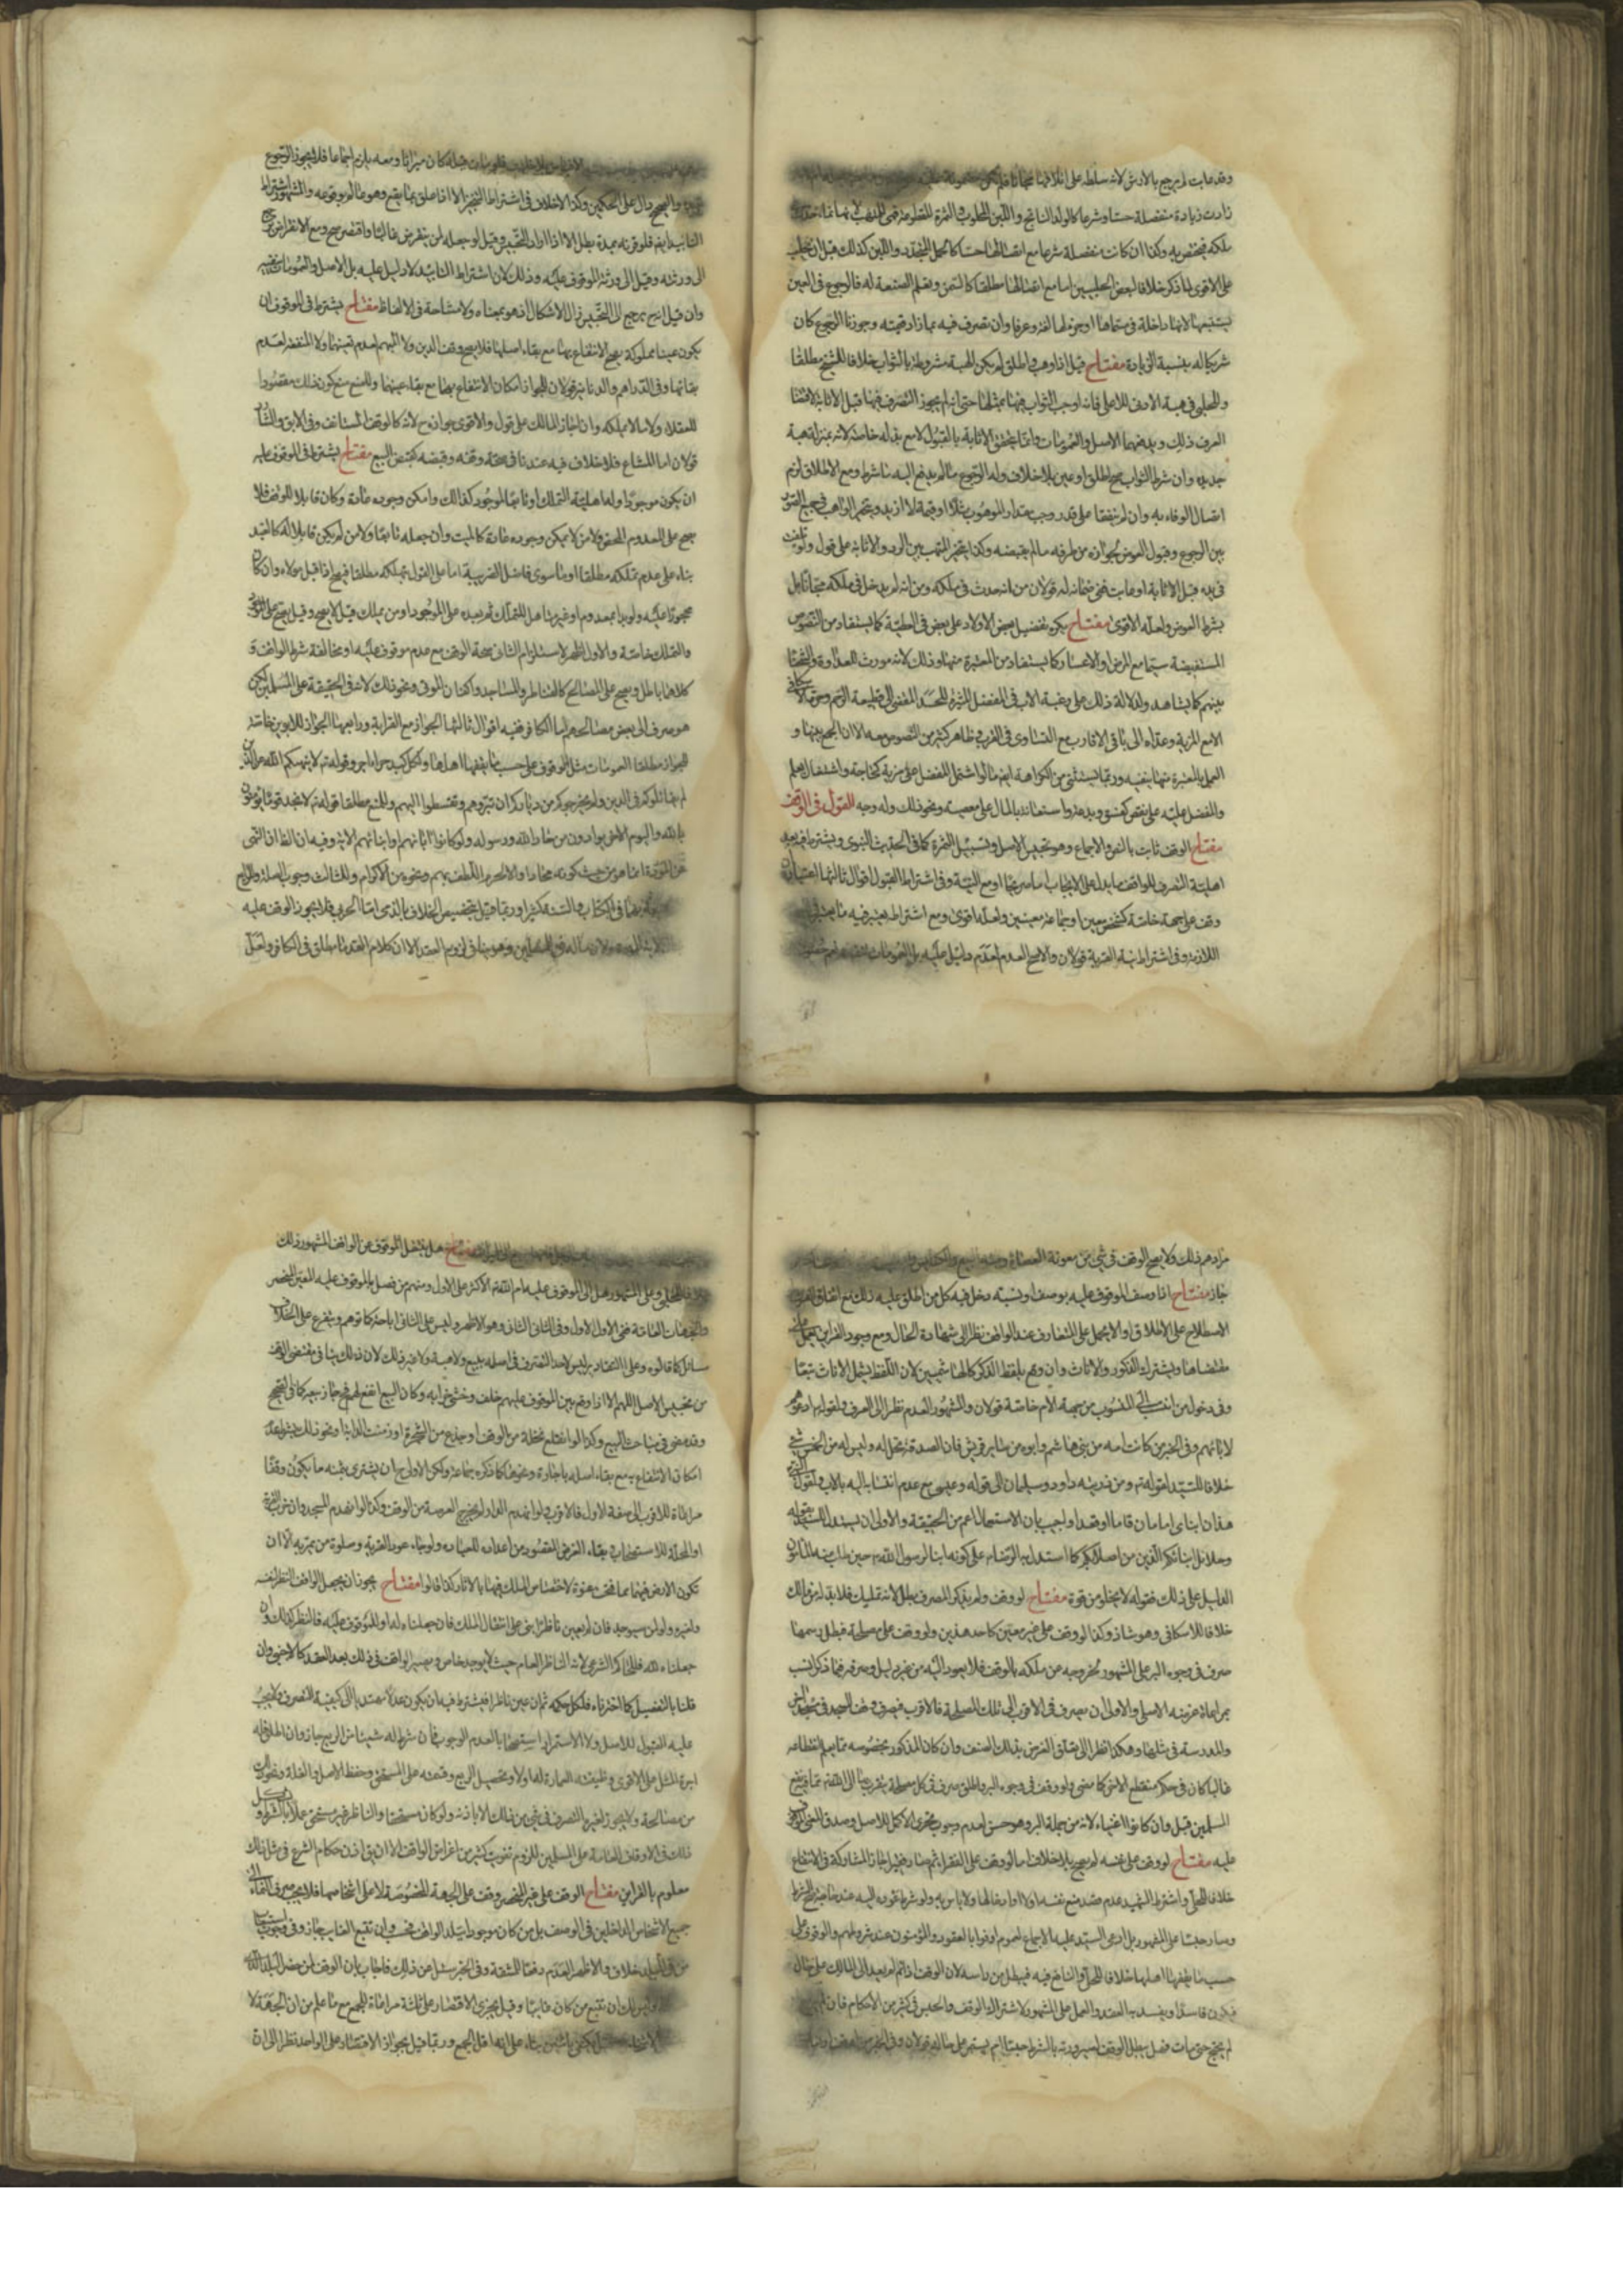 وقد عابت لم يرجع بالارش لانه سلطه على اتلافها مجانا فلم تكن مضمونة عليه
زادت زيادة منفصلة حسا وشرعا كالولد الناتج واللبن المحلوب والثمرة المقطوعة فهي للمتهب لانها نماء
ملكه فيختص به وكذا ان كانت منفصلة شرعا مع اتصالها حسا كالحمل المتجدد واللبن كذلك قبل ان يحلب
على الاقوى لما ذكر خلافا لبعض الحلبيين اما مع اتصالها مطلقا كالسمن وتعلم الصنعة له فالرجوع في العين
يستتبعها لانها داخلة في مسماها او جزء لها لغة وعرفا وان تصرف فيه بما زاد قيمته وجوزنا الرجوع كان
شريكا له بنسبة الزيادة مفتاح قيل اذا وهب واطلق لم يكن الهبة مشروطة بالثواب خلافا للشيخ مطلقا
وللحلبي في هبة الادنى للاعلى فانه اوجب الثواب فيها بمثلها حتى انه لم يجوز التصرف فيها قبل الاثابة لاقتضاء
العرف ذلك ويدفعهما الاصل والعمومات وانما يتحقق الاثابة بالقبول لا مع بذله خاصة لانه بمنزلة هبة
جديدة وان شرط الثواب صح اطلق او عين بلا خلاف وله الرجوع ما لم يدفع اليه ما شرط ومع الاطلاق لزم
اتصال الوفاء به وان لم يتفقا على قدر وجب مقدار الموهوب مثلا او قيمة لا ازيد ويتخير الواهب في جميع الصور
بين الرجوع وقبول العوض لجوازه من طرفه ما لم يقبضه وكذا يتخير المتهب بين الرد والاثابة على قول ولو تلفت
في يده قبل الاثابة او عابت ففي ضمانه له قولان من انه حدث في ملكه ومن انه لم يدخل في ملكه مجانا بل
بشرط العوض ولعله الاقوى مفتاح يكره تفضيل بعض الاولاد على بعض في العطية كما يستفاد من النصوص
المستفيضة سيما مع المرض او الاعسار كما يستفاد من المعتبرة منها وذلك لانه مورث للعداوة والشحناء
بينهم كما يشاهد ولدلالة ذلك على رغبة الاب في المفضل المثيرة للحسد المفضي الى قطيعة الرحم وسوى الاسكافي
الا مع المزية وعداه الى باقي الاقارب مع التساوي في القرب وظاهر كثير من النصوص معه الا ان الجمع بينها و
العمل بالمعتبرة منها يقتضيه وربما يستثنى من الكراهة ايضا ما لو اشتمل المفضل على مزية كحاجة واشتغال بعلم
والمفضل عليه على نقص كفسق وبدعة واستعانة بالمال على معصية ونحو ذلك وله وجه القول في الوقف
مفتاح الوقف ثابت بالنص والاجماع وهو تحبيس الاصل وتسبيل الثمرة كما في الحديث النبوي ويشترط فيه بعد
اهلية التصرف للواقف ما يدل على الايجاب اما صريحا او مع النية وفي اشتراط القبول اقوال ثالثها اعتباره ان
وقف على جهة خاصة كشخص معين او جماعة معينين ولعله اقوى ومع اشتراطه يعتبر فيه ما يعتبر في
اللازمة وفي اشتراط نية القربة قولان والاصح العدم لعدم دليل عليه بل العمومات تنفيه
الاقباض بلا خلاف فلو مات قبله كان ميراثا ومعه يلزم اجماعا فلا يجوز الرجوع
والصحيح دال على الحكمين وكذا لا خلاف في اشتراط التنجيز الا اذا علق بما يقع وهو عالم بوقوعه والمشهور اشتراط
التابيد ايضا فلو قرنه بمدة بطل الا اذا اراد التحبيس وقيل لو جعله لمن ينقرض غالبا واقتصر صح ومع الانقراض يرجع
الى ورثته وقيل الى ورثة الموقوف عليه وذلك لان اشتراط التابيد لا دليل عليه بل الاصل والعمومات تنفيه
وان قيل انه يرجع الى التحبيس زال الاشكال اذ هو بمعناه ولا مشاحة في الالفاظ مفتاح يشترط في الموقوف ان
يكون عينا مملوكة يصح الانتفاع بها مع بقاء اصلها فلا يصح وقف الدين ولا المبهم لعدم تعينهما ولا المنفعة لعدم
بقائها وفي الدراهم والدنانير قولان للجواز امكان الانتفاع بها مع بقاء عينها وللمنع منع كون ذلك مقصودا
للعقلاء ولا ما لا يملكه وان اجاز المالك على قول والاقوى جوازه ح لانه كالوقف المستانف وفي الابق والشارد
قولان اما المشاع فلا خلاف فيه عندنا في صحة وقفه وقبضه كقبض المبيع مفتاح يشترط في الموقوف عليه
ان يكون موجودا وله اهلية التملك او تابعا لموجود كذلك وامكن وجوده عادة وكان قابلا للوقف فلا
يصح على المعدوم المحض ولا من لا يمكن وجوده عادة كالميت وان جعله تابعا ولا من لم يكن قابلا له كالعبد
بناء على عدم تملكه مطلقا او ما سوى فاضل الضريبة اما على القول بتملكه مطلقا فيصح اذا قبل مولاه وان كان
محجورا عليه ولو بدا بمعدوم او غير متاهل للتملك ثم بعده على الموجود او من يملك قيل لا يصح وقيل يصح على الموجود
والمتملك خاصة والاول اظهر لاستلزام الثاني صحة الوقف مع عدم موقوف عليه او مخالفة شرط الواقف و
كلاهما باطل ويصح على المصالح كالقناطر والمساجد واكفان الموتى ونحو ذلك لانه في الحقيقة على المسلمين لكن
هو صرف الى بعض مصالحهم اما الكافر ففيه اقوال ثالثها الجواز مع القرابة ورابعها الجواز للابوين خاصة
للجواز مطلقا العمومات مثل الوقوف على حسب ما يقفها اهلها ولكل كبد حراء اجر وقوله تعالى لا ينهيكم الله عن الذين
لم يقاتلوكم في الدين ولم يخرجوكم من دياركم ان تبروهم وتقسطوا اليهم وللمنع مطلقا قوله تعالى لا تجد قوما يؤمنون
بالله واليوم الاخر يوادون من حاد الله ورسوله ولو كانوا اباءهم او ابناءهم الاية وفيه ان الظاهر ان النهي
عن الموادة انما هو من حيث كونه محادا والا لحرم اللطف بهم ونحوه من الاكرام وللثالث وجوب الصلة والارحام
في الكتاب والسنة كثيرا وربما قيل بتخصيص الخلاف بالذمي اما الحربي فلا يجوز الوقف عليه
ماله فئ للمسلمين وهو ينافي لزوم العقد الا ان كلام القدماء مطلق في الكافر ولعل
مرادهم ذلك ولا يصح الوقف في شيء من معونة العصاة
جاز مفتاح اذا وصف الموقوف عليه بوصف او نسبة دخل فيه كل من اطلق عليه ذلك مع اتفاق العرف
الاصطلاح على الاطلاق او لا يحمل على المتعارف عند الواقف نظرا الى شهادة الحال ومع وجود القراين يعمل على
مقتضاها ويشترك الذكور والاناث وان وقع بلفظ الذكر كالهاشميين لان اللفظ يشمل الاناث تبعا
وفي دخول من انتسب الى المنسوب من جهة الام خاصة قولان والمشهور العدم نظرا الى العرف ولقوله تعالى ادعوهم
لابائهم وفي الخبر من كانت امه من بني هاشم وابوه من سائر قريش فان الصدقة تحل له وليس له من الخمس شيء
خلافا للسيد لقوله تعالى ومن ذريته داود وسليمان الى قوله وعيسى مع عدم انتسابه اليه بالاب ولقول النبي
هذان ابناي امامان قاما او قعدا واجيب بان الاستعمال اعم من الحقيقة والاولى ان يستدل للسيد بقوله
وحلائل ابنائكم الذين من اصلابكم كما استدل به الرضا ع على كونه ابنا لرسول الله ص حين طلب منه المامون
الدليل على ذلك فقوله لا يخلو من قوة مفتاح لو وقف ولم يذكر المصرف بطل لانه تمليك فلا بد له من مالك
خلافا للاسكافي وهو شاذ وكذا لو وقف على غير معين كاحد هذين ولو وقف على مصلحة فبطل رسمها
صرف في وجوه البر على المشهور لخروجه عن ملكه بالوقف فلا يعود اليه من غير دليل وصرفه فيما ذكر انسب
بمراعاة غرضه الاصلي والاولى ان يصرف في الاقرب الى تلك المصلحة فالاقرب فيصرف وقف المسجد في مسجد اخر
والمدرسة في مثلها وهكذا نظرا الى تعلق الغرض بذلك الصنف وان كان المذكور بخصوصه مما يعلم انقطاعه
غالبا كان في حكم منقطع الاخر كما مضى ولو وقف في وجوه البر واطلق صرف في كل مصلحة يتقرب بها الى الله تعالى مما فيه نفع
المسلمين قيل وان كانوا اغنياء لانه من جملة البر وهو حسن لعدم وجوب تحري الاكمل للاصل وصدق المعنى الموقوف
عليه مفتاح لو وقف على نفسه لم يصح بلا خلاف اما لو وقف على الفقراء ثم صار فقيرا جاز المشاركة في الانتفاع
خلافا للحلي واشترط الشهيد عدم قصد منع نفسه اولا او ادخالها ولا باس به ولو شرط عوده اليه عند حاجته صح الشرط
وصار حبسا على المشهور بل ادعى السيد عليه الاجماع لعموم اوفوا بالعقود والمؤمنون عند شروطهم والوقوف على
حسب ما يقفها اهلها خلافا للحلي والنافع فيه فيبطل من راسه لان الوقف اذا تم لم يعد الى المالك على حال
فيكون فاسدا ويفسد به العقد والعمل على المشهور لاشتراك الوقف والحبس في كثير من الاحكام فان لم
لم يحتج حتى مات فهل يبطل الوقف لصيرورته بالشرط حبسا ام يستمر على حاله قولان وفي الخبر من اوقف ارضا
مفتاح هل ينتقل الموقوف عن الواقف المشهور ذلك
خلافا للحلبي وعلى المشهور هل الى الموقوف عليه ام الله تعالى الاكثر على الاول ومنهم من فصل بالموقوف عليه المعين المنحصر
والجهات العامة ففي الاول الاول وفي الثاني الثاني وهو الاظهر وليس على الثاني اباحة كما توهم ويتفرع على الخلاف
مسائل كما قالوه وعلى التقادير ليس لاحد التصرف في اصله ببيع ولا هبة ولا غير ذلك لان ذلك ينافي مقتضى الوقف
من تحبيس الاصل اللهم الا اذا وقع بين الموقوف عليهم خلف وخشي خرابه وكان البيع انفع لهم فح جاز بيعه كما في الصحيح
وقد مضى في مباحث البيع وكذا لو انقلع نخلة من الوقف او جذع من الشجرة او زمنت الدابة ونحو ذلك بشرط عدم
امكان الانتفاع به مع بقاء اصله باجارة وغيرها كما ذكره جماعة ولكن الاولى ح ان يشتري بثمنه ما يكون وقفا
مراعاة للاقرب الى صفة الاول فالاقرب ولو انهدم الدار لم يخرج العرصة من الوقف وكذا لو انهدم المسجد وان خرب القرية
او المحلة للاستصحاب وبقاء الغرض المقصود من اعداده للعبادة ولو جاء عود القرية وصلوة من يمر به الا ان
تكون الارض فيها مما فتحت عنوة لاختصاص الملك فيها بالاثار كذا قالوا مفتاح يجوز ان يجعل الواقف النظر لنفسه
ولغيره ولو لمن سيوجد فان لم يعين ناظرا بني على انتقال الملك فان جعلناه له او للموقوف عليه فالنظر كذلك وان
جعلناه لله فللحاكم الشرعي لانه الناظر العام حيث لا يوجد خاص ويصير الواقف في ذلك بعد العقد كالاجنبي وان
قلنا بالتفصيل كما اخترناه فلكل حكمه ثم ان عين ناظرا فيشترط فيه ان يكون عدلا مهتديا الى كيفية التصرف ولا يجب
عليه القبول للاصل ولا الاستمرار استصحابا لعدم الوجوب فان شرط له شيئا من الريع جاز وان اطلق فله
اجرة المثل على الاقوى ووظيفته العمارة لها اولا وتحصيل الريع وقسمته على المستحق وحفظ الاصل والغلة ونحو ذلك
من مصالحه ولا يجوز لغيره التصرف في شيء من ذلك الا باذنه ولو كان مستحقا والناظر غير مستحق عملا بالشرط وكل
ذلك في الاوقاف العامة على المسلمين للزوم تفويت كثير من اغراض الواقف الا ان يق اذن حكام الشرع في مثل ذلك
معلوم بالقراين مفتاح الوقف على غير المنحصر وقف على الجهة المخصوصة لا على اشخاصها فلا يجب صرف النماء الى
جميع الاشخاص الداخلين في الوصف بل من كان موجودا ببلد الواقف فحسب وان تتبع الغائب جاز وفي وجوب استيعاب
من في البلد خلاف والاظهر العدم دفعا للمشقة وفي الخبر سئل عن ذلك فاجاب بان الوقف لمن حضر البلد الذي
وليس لك ان تتبع من كان غائبا وقيل يجزي الاقتصار على ثلثة مراعاة للجمع مع ما علم من ان الجهة لا
الاشخاص وقيل يكفي باثنين بناء على انه اقل الجمع وربما قيل بجواز الاقتصار على الواحد نظرا الى ان